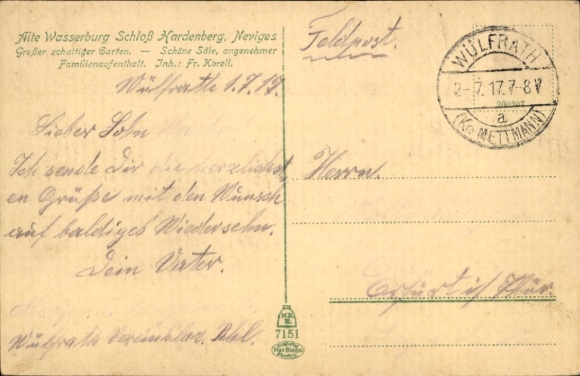 Alte Wasserburg Schloß Hardenberg, Neviges
Großer schattiger Garten. — Schöne Säle, angenehmer
Familienaufenthalt. Inh.: Fr. Korell.
Wülfrath 1.7.17.
Lieber Sohn
Ich sende Dir die herzlichst
en Grüße mit den Wunsch
auf baldiges Wiedersehn.
Dein Vater.
Wülfrath Rhl.
7151
Feldpost.
WÜLFRATH
2-7.17.7-8V
a
(Kr. METTMANN)
Herrn.
Erfurt i/ Thür.